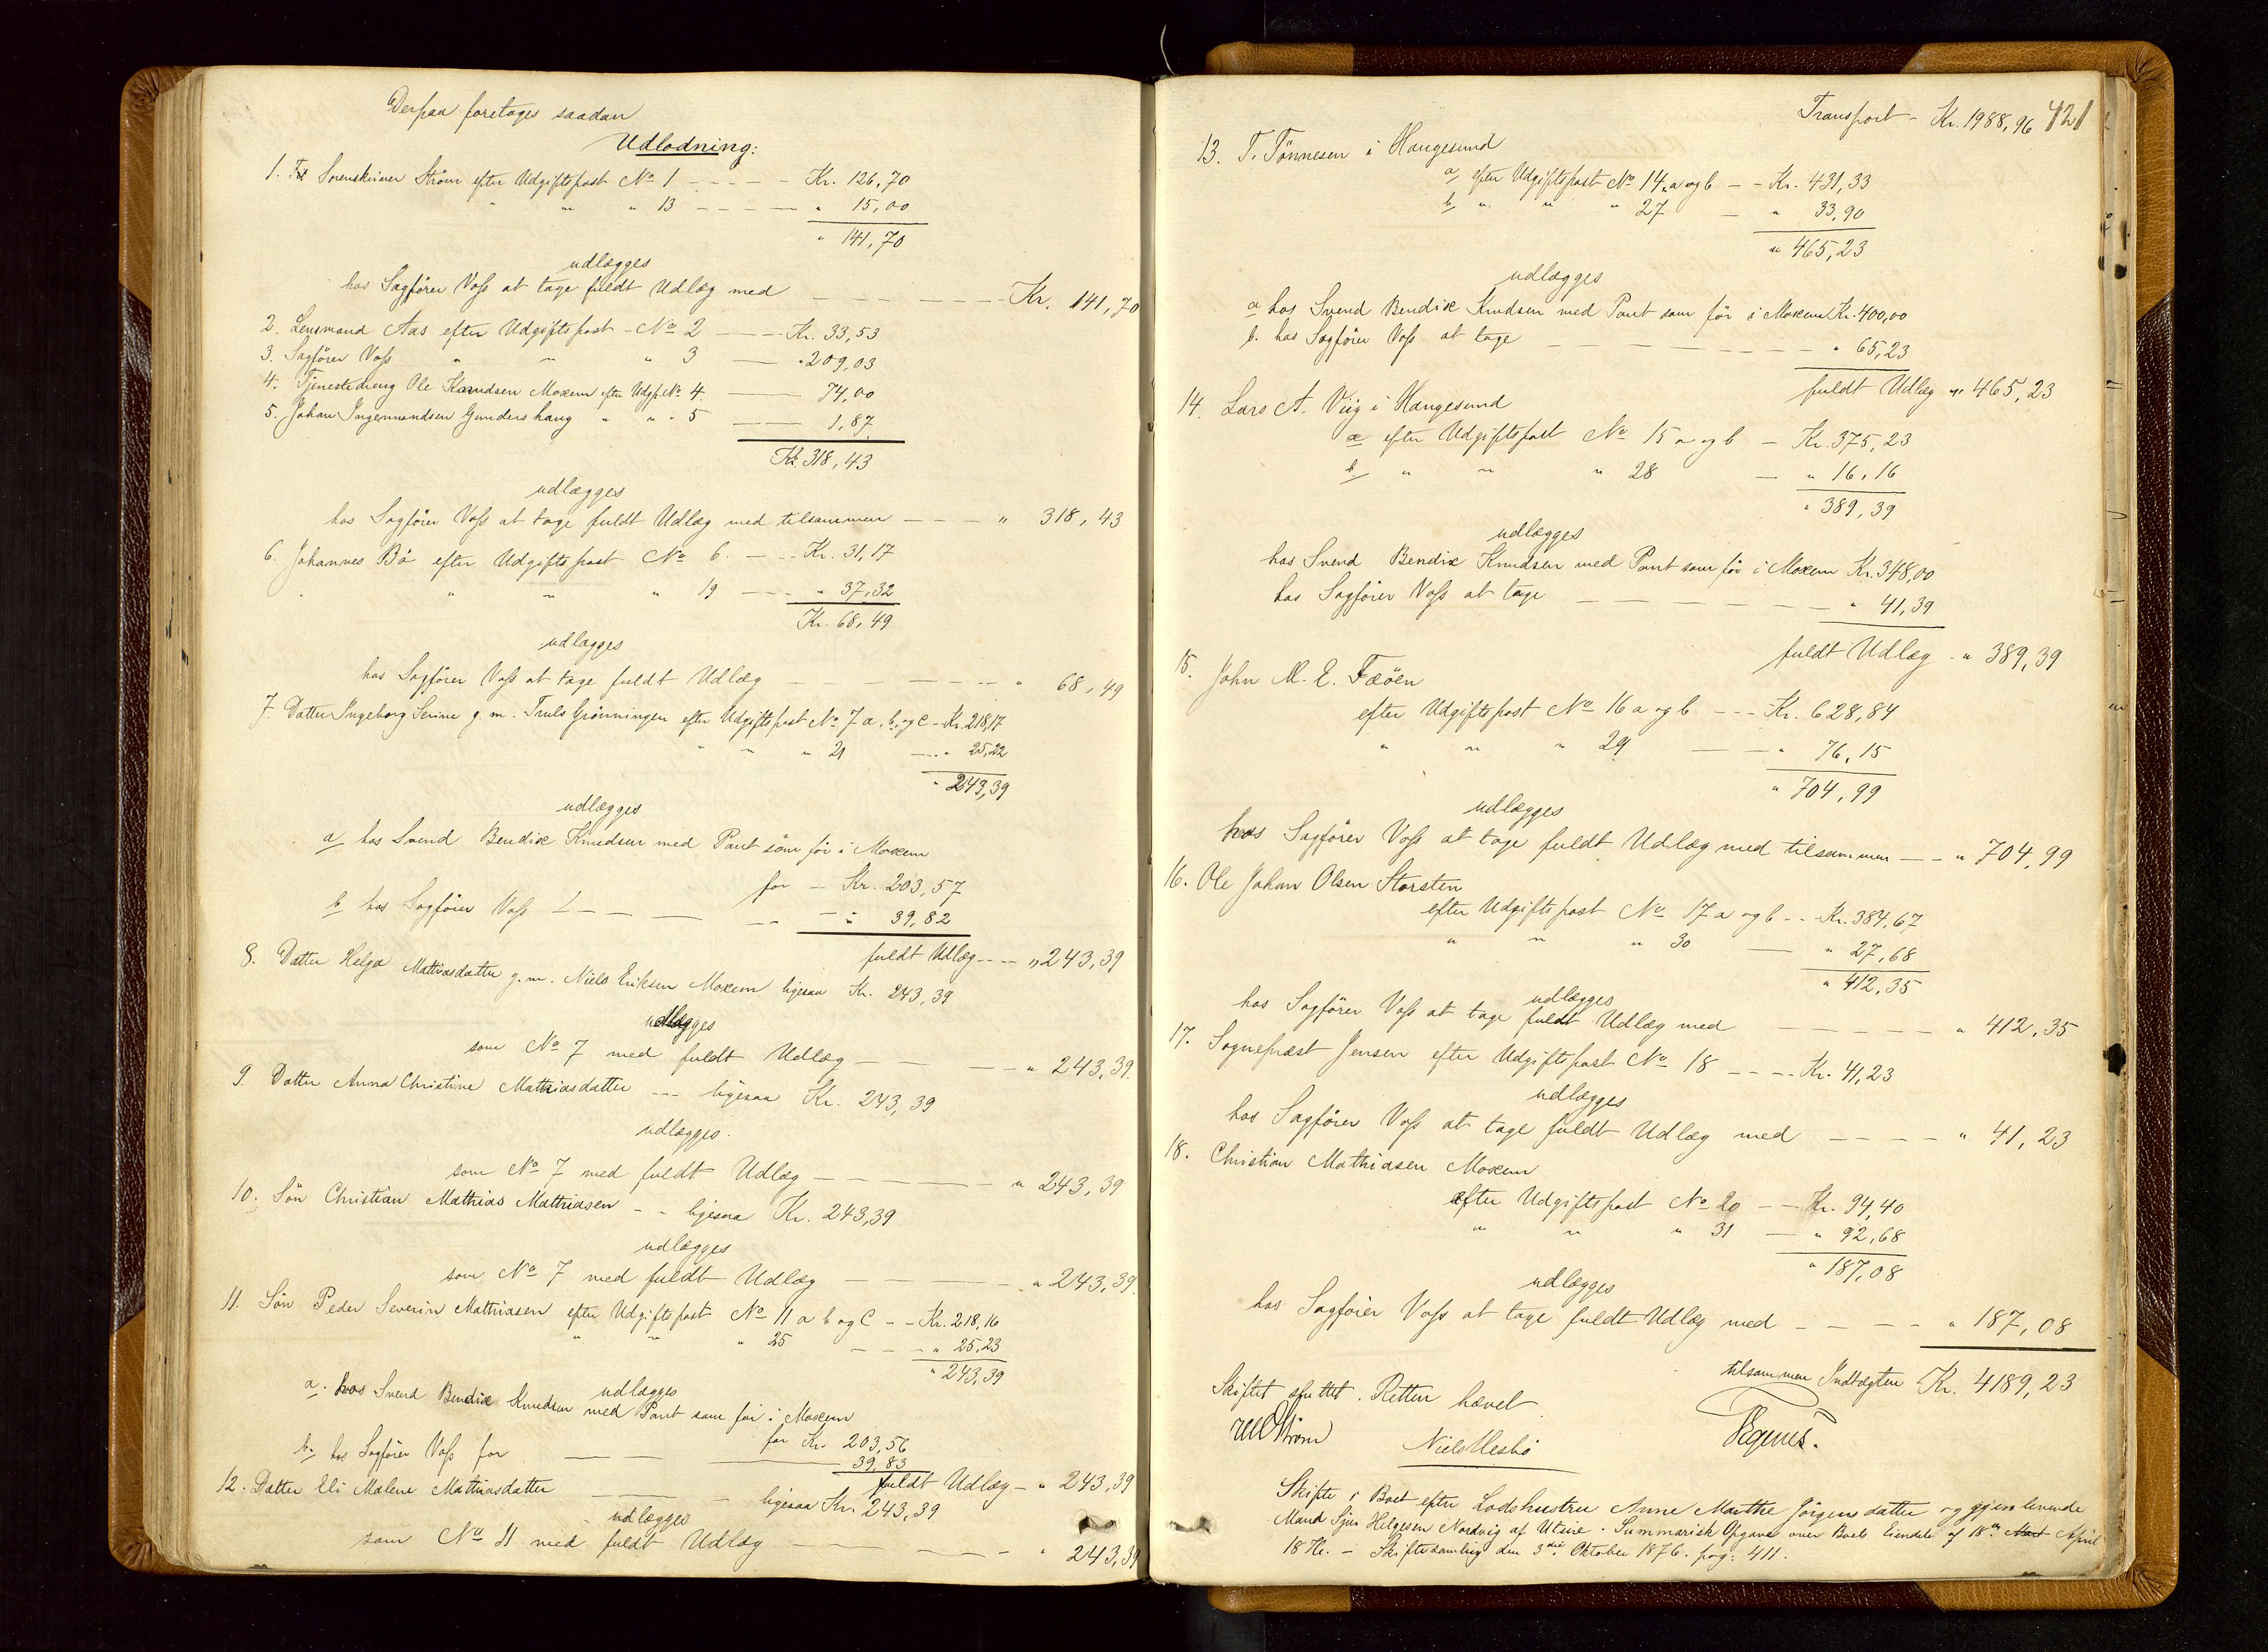 Derpaa foretoges saadan
Udlodning:
1. Sorenskriver Strøm efter Udgiftspost No 1 - - - - - Kr. 126,70
" " " 13 - - - - - " 15,00
" 141,70
udlægges
hos Sagfører Voss at tage fuldt Udlæg med - - - - - - - Kr. 141,70
2. Lensmand Aas efter Udgiftspost - No 2 - - - Kr. 33,53
3. Sagfører Voss " " " 3 - - " 209,03
4. Tjenestedreng Ole Knudsen Moxem efter Udgp. No 4. - - 74,00
5. Johan Ingemundsen Gundershaug " " " 5 - - 1,87
Kr. 318,43
udlægges
hos Sagfører Voss at tage fuldt Udlæg med tilsammen - - - - " 318,43
6. Johannes Bö efter Udgiftspost No 6. - - - Kr. 31,17
" " " 19 - - - " 37,32
Kr. 68,49
udlægges
hos Sagfører Voss at tage fuldt Udlæg - - - - - - - " 68,49
7. Datter Ingeborg Serine g. m. Truls Grönningen efter Udgiftspost No 7 a. b. og c - Kr. 218,17
" " " 21 - - - " 25,22
" 243,39
udlægges
a hos Svend Bendix Knudsen med Pant som før i Moxem
for - Kr. 203,57
b hos Sagfører Voss - - - - - - - " 39,82
fuldt Udlæg - - - " 243,39
8. Datter Helga Mathiasdatter g. m. Niels Eriksen Moxem ligesaa Kr. 243,39
udlægges
som No 7 med fuldt Udlæg - - - - " 243,39.
9. Datter Anna Christine Mathiasdatter - - - ligesaa Kr. 243,39
udlægges.
som No 7 med fuldt Udlæg - - - - - - " 243,39
10. Søn Christian Mathias Mathiasen - - ligesaa Kr. 243,39
udlægges
som No 7 med fuldt Udlæg - - - - - - " 243,39.
11. Søn Peder Severin Mathiasen efter Udgiftspost No 11 a b og c - - Kr. 218,16
" " " 25 - - - " 25,23
" 243,39
udlægges
a. hos Svend Bendix Knudsen med Pant som før i Moxem
for Kr. 203,56
b. hos Sagfører Voss for - - - - 39,83
fuldt Udlæg - " 243,39
12. Datter Eli Malene Mathiasdatter - - - ligesaa Kr. 243,39
udlægges
som No 11 med fuldt Udlæg - - - - - " 243,39
Transport - Kr. 1988,96
421
13. T. Tönnesen i Haugesund
a efter Udgiftspost No 14 a og b - - Kr. 431,33
b " " " 27 - " 33,90
" 465,23
udlægges
a hos Svend Bendix Knudsen med Pant som før i Moxem Kr. 400,00
b. hos Sagfører Voss at tage - - - - - - - - " 65,23
fuldt Udlæg " 465,23
14. Lars A. Viig i Haugesund
a efter Udgiftspost No 15 a og b - Kr. 375,23
b " " " 28 - " 16,16
" 389,39
udlægges
hos Svend Bendix Knudsen med Pant som før i Moxem Kr. 348,00
hos Sagfører Voss at tage - - - - - - - " 41,39
fuldt Udlæg - " 389,39
15. John M. E. Fæöen
efter Udgiftspost No 16 a og b - - - Kr. 628,84
" " " 29 - - " 76,15
" 704,99
udlægges
hos Sagfører Voss at tage fuldt Udlæg med tilsammen - - " 704,99
16. Ole Johan Olsen Storsten
efter Udgiftspost No 17 a og b - - Kr. 384,67
" " " 30 - " 27,68
" 412,35
udlægges
hos Sagfører Voss at tage fuldt Udlæg med - - - - - " 412,35
17. Sognepræst Jensen efter Udgiftspost No 18 - - - - Kr. 41,23
udlægges
hos Sagfører Voss at tage fuldt Udlæg med - - - - " 41,23
18. Christian Mathiasen Moxem
efter Udgiftspost No 20 - - Kr. 94,40
" " " 31 - " 92,68
" 187,08
udlægges
hos Sagfører Voss at tage fuldt Udlæg med - - - - " 187,08
tilsammen Indtægten Kr. 4189,23
Skiftet sluttet. Retten hævet.
Strøm
Niels Vesbö
Skifte i Boet efter Lodshustru Anne Marthe Jörgensdatter og gjenlevende
Mand Sjur Helgesen Nordvig af Utsire. Summarisk Opgave over Boets Eiendele af 18de Mart April
1876. - Skiftesamling den 3die Oktober 1876. pag: 411.